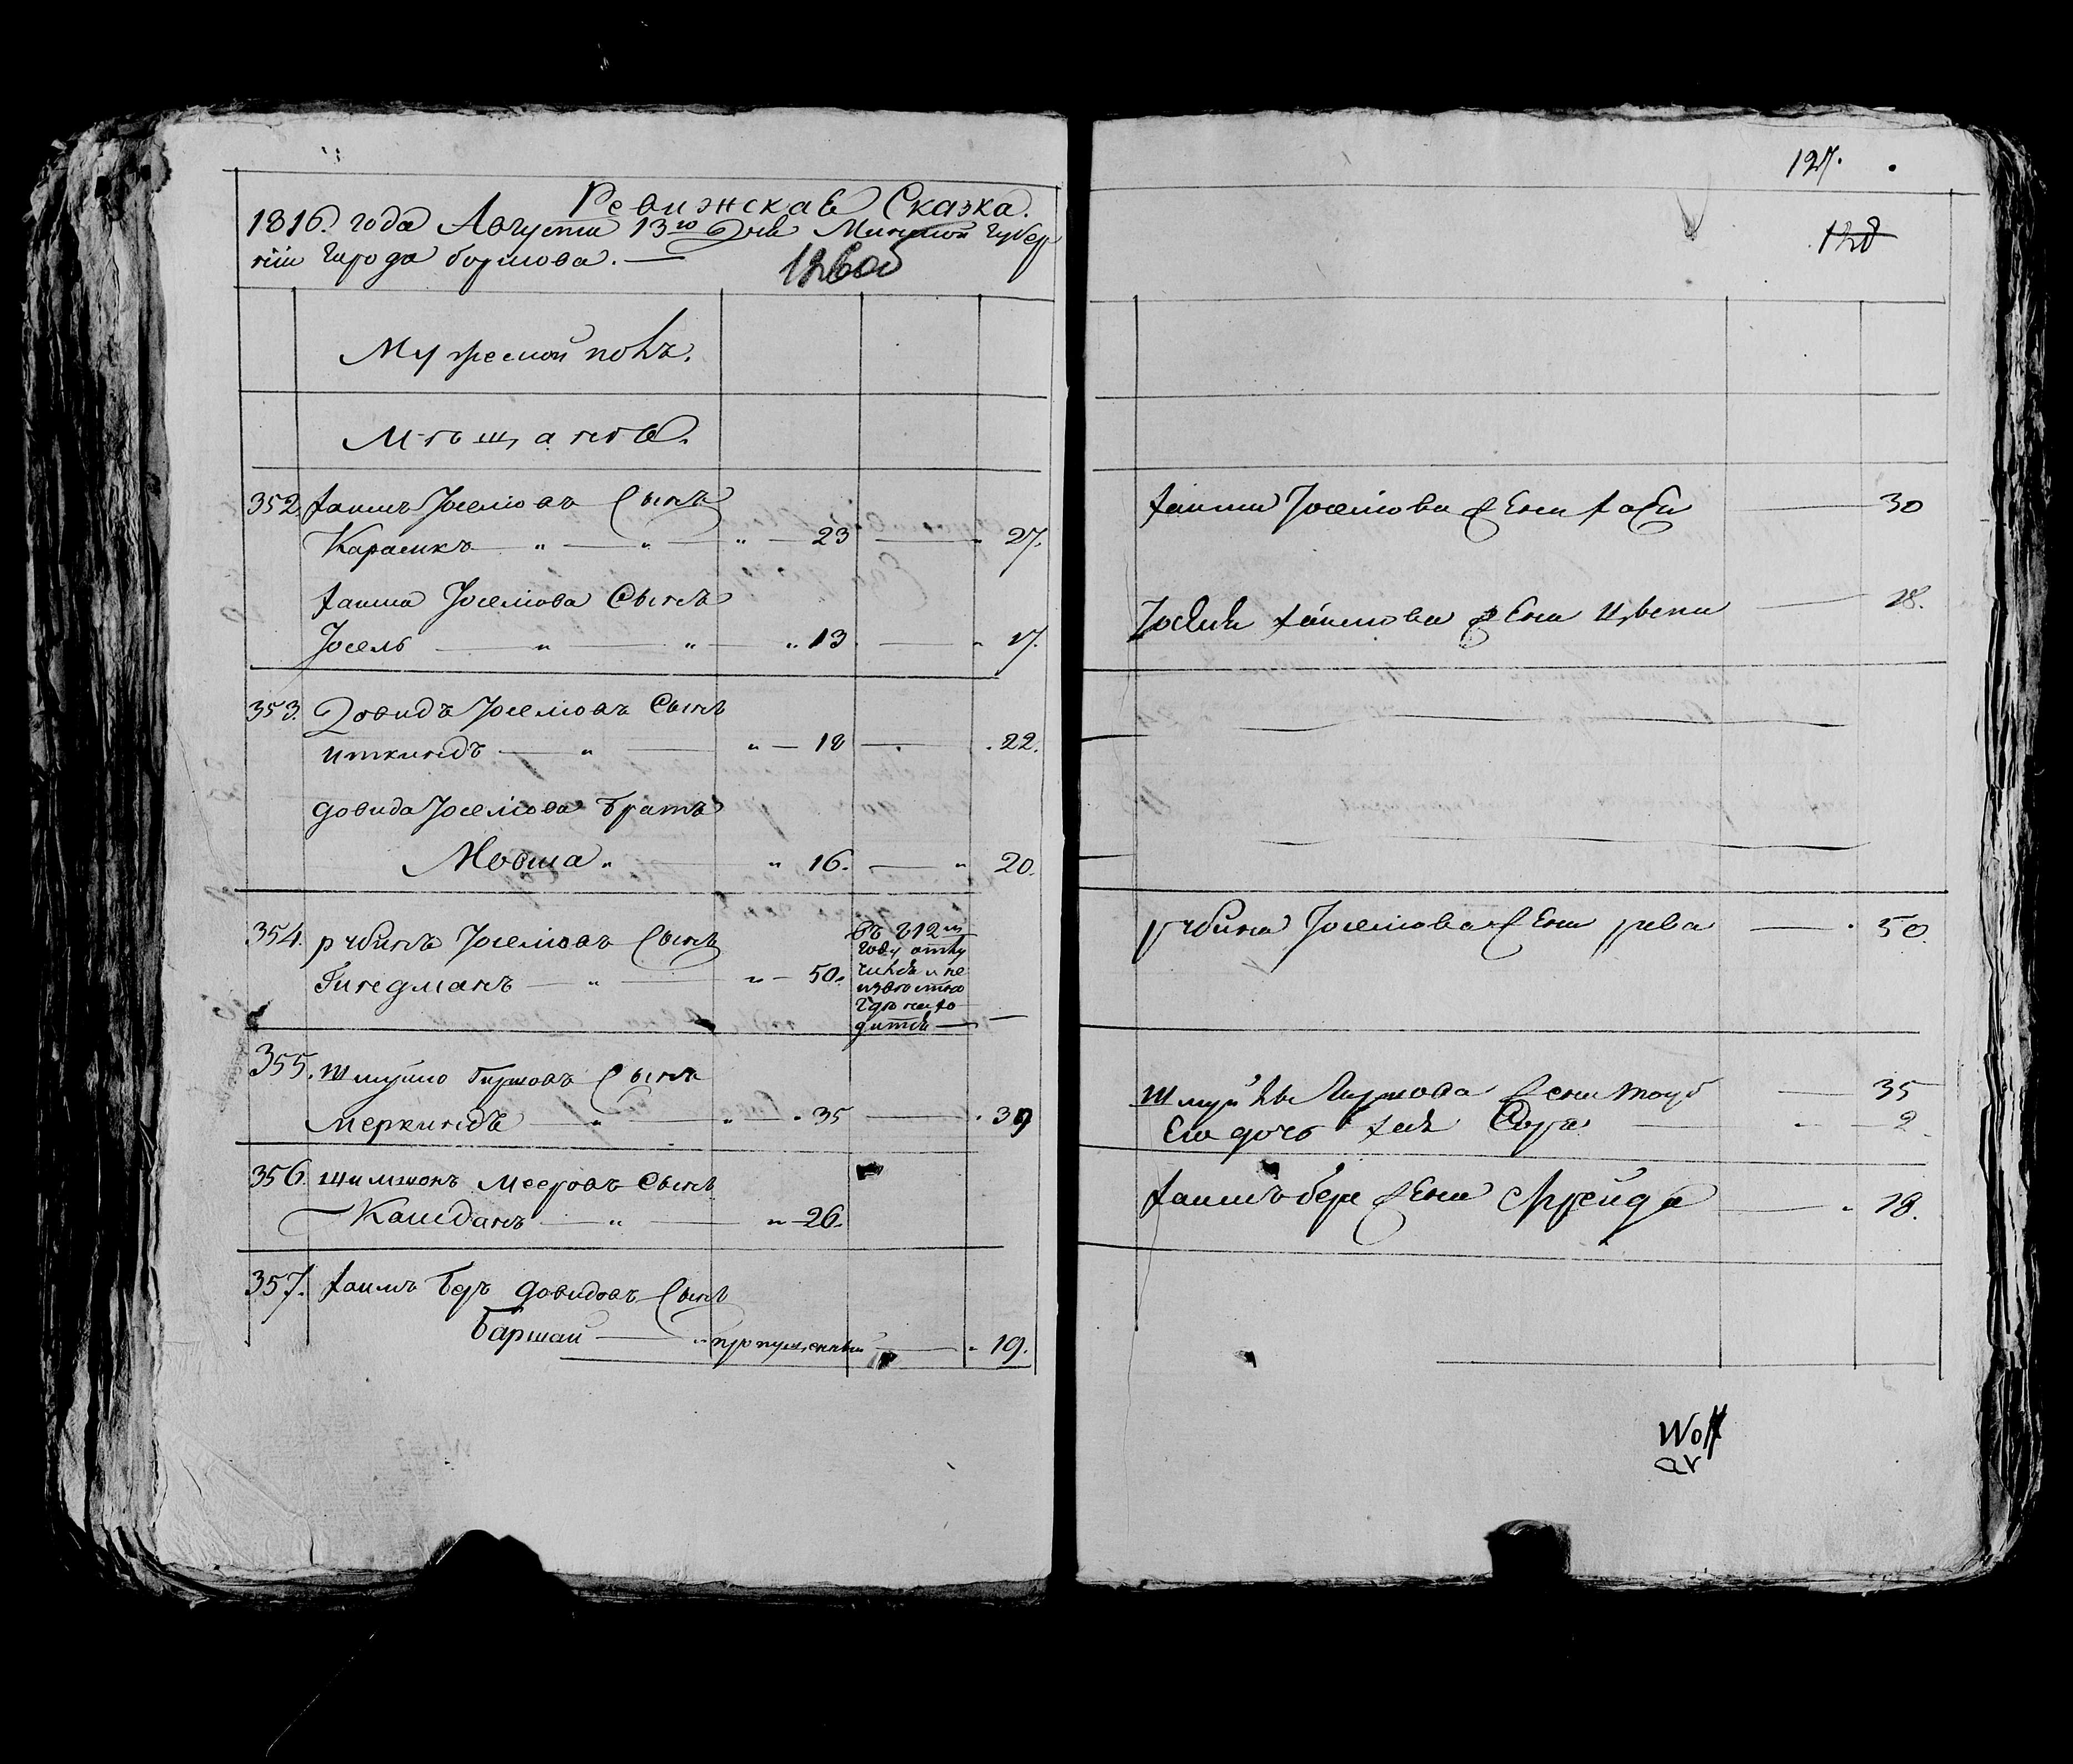 Ревизская Сказка.
1816. года Августа 13го Дня Минской Губер
нiи Города борисова. —
126об
Мужеской полъ.
Мѣщанѣ.
352. Хаимъ Іоселiовъ Сынъ
Карасикъ — " — " — " — 23 — " 27.
Хаима Іоселiова Сынъ
Іосель — " — " — " 13 — " 17.
353. Довидъ Іоселiовъ Сынъ
иткиндъ — " — " — 18 — . 22.
довида Іоселiова братъ
Мовша " — " 16. — " 20.
354. рубинъ Іоселiовъ Сынъ
Гиндманъ — " — " — 50.
Въ 812м
году отлу
чился и не
извѣстно
гдѣ нахо
дится —
355. шмуйло Гиршовъ Сынъ
Меркиндъ — " — " — " 35 — " 39
356. шимшонъ Мееровъ Сынъ
Кашданъ — " — " — 26.
357. Хаимъ беръ довидовъ Сынъ
Баршай — " пропущенный — " 19.
127.
128
Хаима Іоселiова Жена Хася — 30
Іоселя Хаимова Жена Цвейта — 18.
рубина Іоселiова Жена рева — . 50.
шмуйлы Гиршова Жена — 35
Его дочь Хая Сора — " — 2.
Хаимъ бера Жена Фрейда — " 18.
Wolf
ar